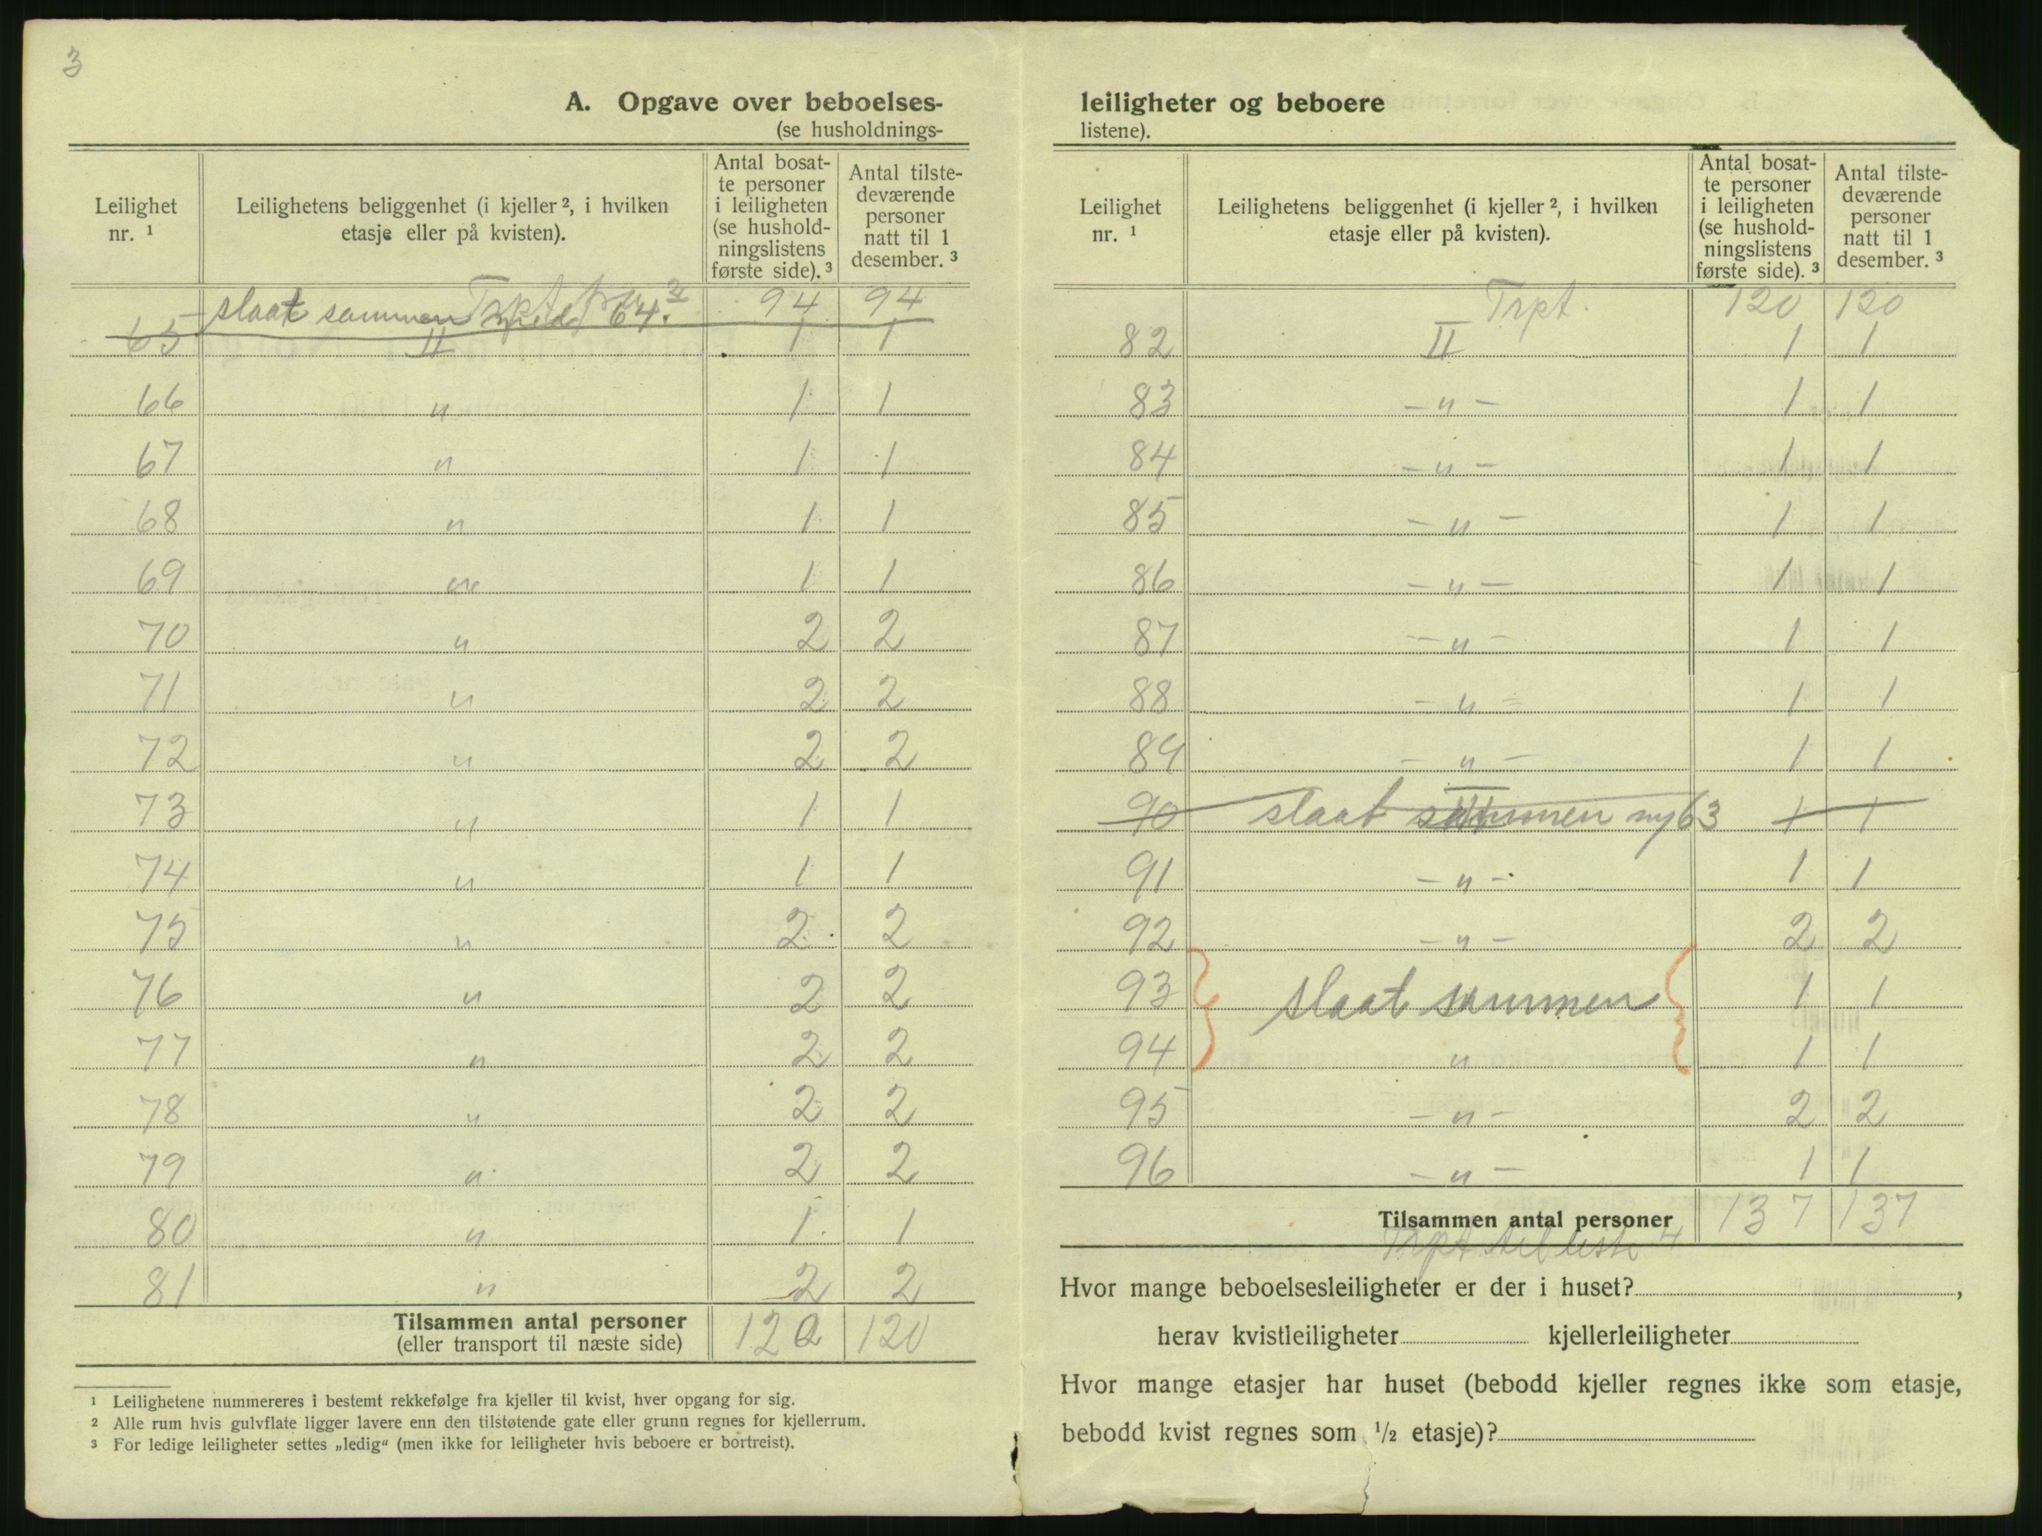 3
A. Opgave over beboelses-
(se husholdnings-
Leilighet nr. ¹ | Leilighetens beliggenhet (i kjeller ², i hvilken etasje eller på kvisten). | Antal bosat-te personer i leiligheten (se hushold-ningslistens første side). ³ | Antal tilste-deværende personer natt til 1 desember. ³
Trpt fra 94 94
65 slaat sammen med 64. II 1 1
66 " 1 1
67 " 1 1
68 " 1 1
69 " 1 1
70 " 2 2
71 " 2 2
72 " 2 2
73 " 1 1
74 " 1 1
75 " 2 2
76 " 2 2
77 " 2 2
78 " 2 2
79 " 2 2
80 " 1 1
81 " 2 2
Tilsammen antal personer 120 120
(eller transport til næste side)
¹ Leilighetene nummereres i bestemt rekkefølge fra kjeller til kvist, hver opgang for sig.
² Alle rum hvis gulvflate ligger lavere enn den tilstøtende gate eller grunn regnes for kjellerrum.
³ For ledige leiligheter settes „ledig“ (men ikke for leiligheter hvis beboere er bortreist).
leiligheter og beboere
listene).
Leilighet nr. ¹ | Leilighetens beliggenhet (i kjeller ², i hvilken etasje eller på kvisten). | Antal bosat-te personer i leiligheten (se hushold-ningslistens første side). ³ | Antal tilste-deværende personer natt til 1 desember. ³
Trpt. 120 120
82 II 1 1
83 - " - 1 1
84 - " - 1 1
85 - " - 1 1
86 - " - 1 1
87 - " - 1 1
88 - " - 1 1
89 - " - 1 1
90 slaat sammen 63 1 1
91 - " - 1 1
92 - " - 2 2
93 slaat sammen 1 1
94 " 1 1
95 - " - 2 2
96 - " - 1 1
Tilsammen antal personer 137 137
Trpt til liste 4
Hvor mange beboelsesleiligheter er der i huset?
herav kvistleiligheter kjellerleiligheter
Hvor mange etasjer har huset (bebodd kjeller regnes ikke som etasje,
bebodd kvist regnes som ½ etasje)?